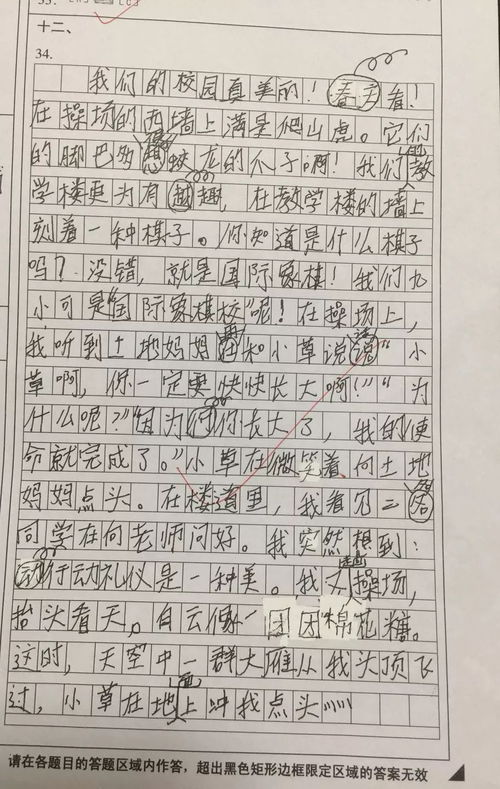 十二、
34.
我们的校园真美丽！春天看！
在操场的西墙上满是爬山虎。它们
的脚巴多像蛟龙的爪子啊！我们的教
学楼更为有趣，在教学楼的墙上
刻着一种棋子。你知道是什么棋子
吗？没错，就是国际象棋！我们九
小可是"国际象棋校"呢！在操场上，
我听到土地妈妈在和小草说话"小
草啊，你一定要快快长大啊！""为
什么呢？""因为你长大了，我的使
命就完成了。"小草在微笑着、向土地
妈妈点头。在楼道里，我看见二
同学在向老师问好。我突然想到：
行动礼仪是一种美。我又操场，
抬头看天，白云像一团团棉花糖。
这时，天空中一群大雁从我头顶飞
过，小草在地上冲我点头
请在各题目的答题区域内作答，超出黑色矩形边框限定区域的答案无效